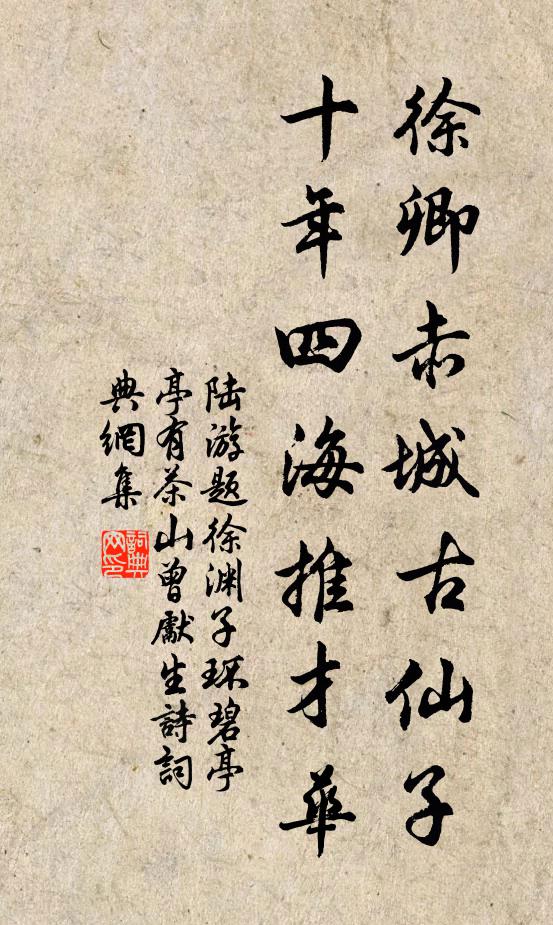 徐卿赤城古仙子
十年四海推才華
陆游题徐渊子环碧亭
亭有茶山曾獻生詩詞
典網集
詞典網印